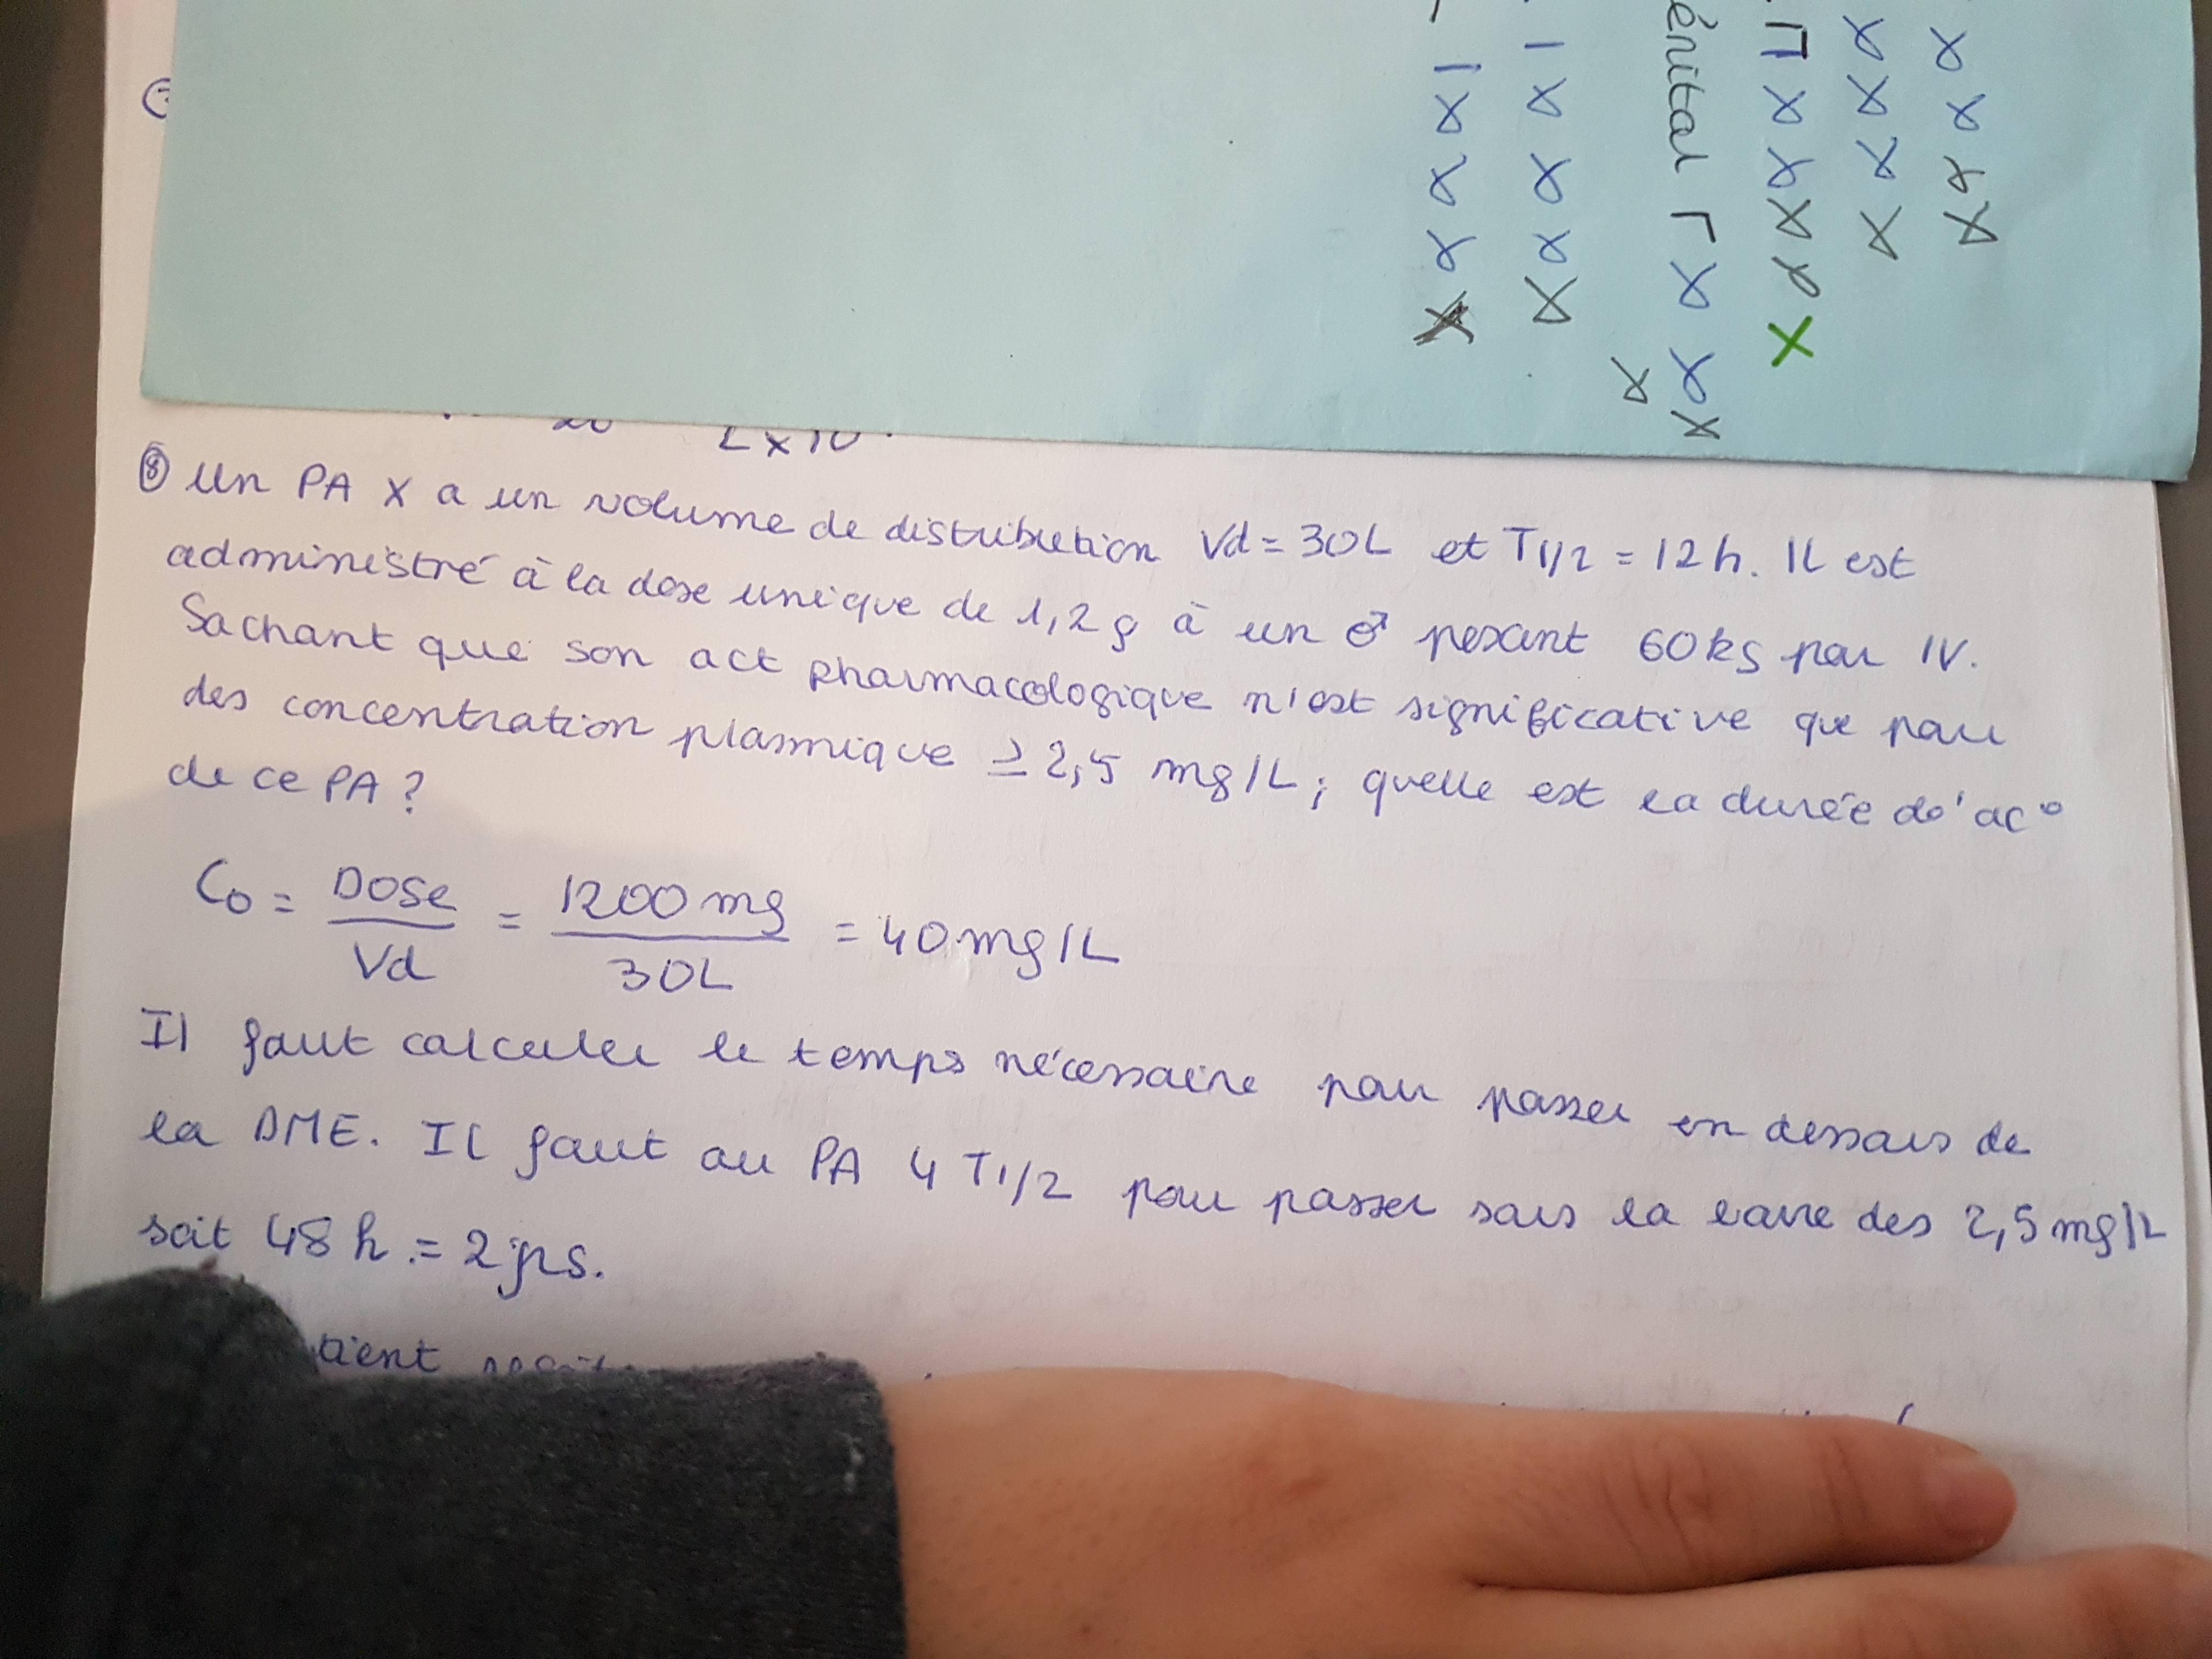 énital
2 x 10
⑧ Un PA X a un volume de distribution Vd = 30L et T1/2 = 12h. Il est
administré à la dose unique de 1,2g à un ♂ pesant 60kg par IV.
Sachant que son act pharmacologique n'est significative que pour
des concentration plasmique ≥ 2,5 mg/L ; quelle est la durée d'ac°
de ce PA ?
C0 = Dose / Vd = 1200 mg / 30L = 40 mg/L
Il faut calculer le temps nécessaire pour passer en dessous de
la DME. Il faut au PA 4 T1/2 pour passer sous la barre des 2,5 mg/L
soit 48 h. = 2 jrs.